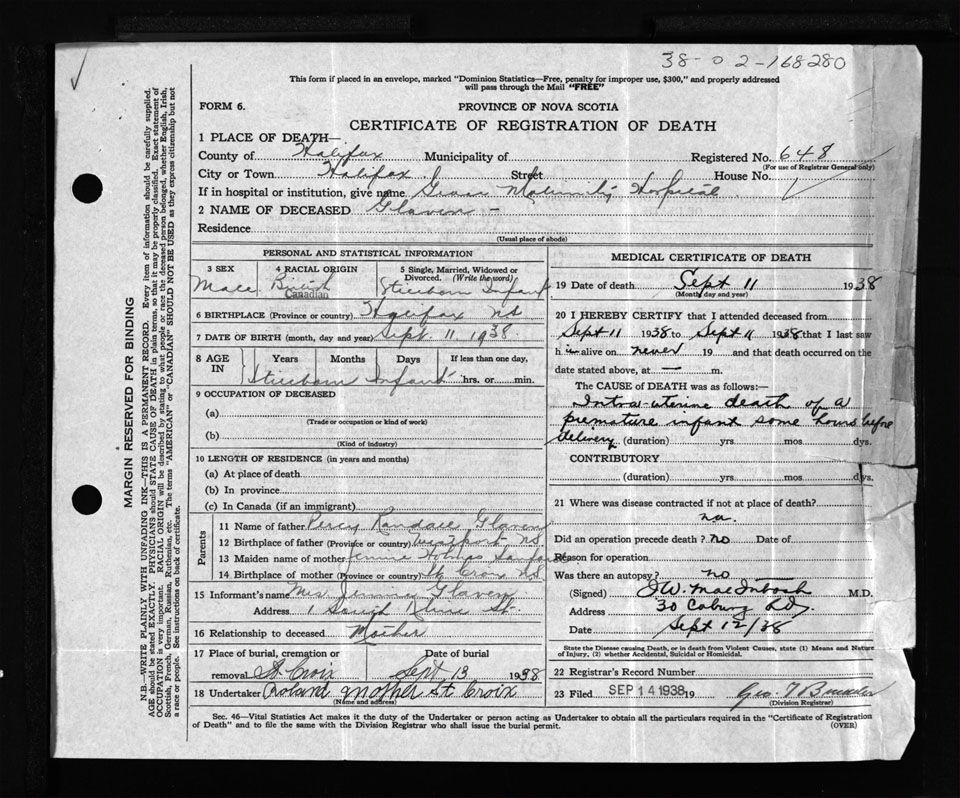 38-02-168280
This form if placed in an envelope, marked "Dominion Statistics—Free, penalty for improper use, $300," and properly addressed
will pass through the Mail "FREE"
FORM 6.
PROVINCE OF NOVA SCOTIA
CERTIFICATE OF REGISTRATION OF DEATH
1 PLACE OF DEATH—
County of Halifax Municipality of Registered No. 648
(For use of Registrar General only)
City or Town Halifax Street House No.
If in hospital or institution, give name Grace Maternity Hospital
2 NAME OF DECEASED Glaven -
Residence
(Usual place of abode)
PERSONAL AND STATISTICAL INFORMATION
3 SEX
4 RACIAL ORIGIN
5 Single, Married, Widowed or
Divorced. (Write the word)
Male British Stillborn Infant
Canadian
6 BIRTHPLACE (Province or country) Halifax NS
7 DATE OF BIRTH (month, day and year) Sept 11, 1938
8 AGE
IN
Years Months Days If less than one day,
Stillborn Infant hrs. or min.
9 OCCUPATION OF DECEASED
(a)
(Trade or occupation or kind of work)
(b)
(Kind of industry)
10 LENGTH OF RESIDENCE (in years and months)
(a) At place of death
(b) In province
(c) In Canada (if an immigrant)
Parents
11 Name of father Percy Randall Glaven
12 Birthplace of father (Province or country) NS
13 Maiden name of mother Holmes
14 Birthplace of mother (Province or country) St Croix N.S.
15 Informant's name Mrs Glaven
Address 1 South St.
16 Relationship to deceased Mother
17 Place of burial, cremation or Date of burial
removal St. Croix Sept 13 1938
18 Undertaker Roland St Croix
(Name and address)
MEDICAL CERTIFICATE OF DEATH
19 Date of death Sept 11 1938
(Month, day and year)
20 I HEREBY CERTIFY that I attended deceased from
Sept 11 1938 to Sept 11 1938 that I last saw
h im alive on never 19 and that death occurred on the
date stated above, at — m.
The CAUSE of DEATH was as follows:—
Intra-uterine death of a
premature infant some hours before
delivery (duration) yrs. mos. dys.
CONTRIBUTORY
(duration) yrs. mos. dys.
21 Where was disease contracted if not at place of death?
na.
Did an operation precede death? no Date of
Reason for operation
Was there an autopsy? no
(Signed) J.W. MacIntosh M.D.
Address 30 Coburg Rd.
Date Sept 12/38
State the Disease causing Death, or in death from Violent Causes, state (1) Means and Nature
of Injury, (2) whether Accidental, Suicidal or Homicidal.
22 Registrar's Record Number
23 Filed SEP 14 1938 19 Geo.
(Division Registrar)
Sec. 46—Vital Statistics Act makes it the duty of the Undertaker or person acting as Undertaker to obtain all the particulars required in the "Certificate of Registration
of Death" and to file the same with the Division Registrar who shall issue the burial permit.
(OVER)
MARGIN RESERVED FOR BINDING
N.B.—WRITE PLAINLY WITH UNFADING INK—THIS IS A PERMANENT RECORD. Every item of information should be carefully supplied.
AGE should be stated EXACTLY. PHYSICIANS should STATE CAUSE OF DEATH in plain terms, so that it may be properly classified. Exact statement of
OCCUPATION is very important. RACIAL ORIGIN will be described by stating to what people or race the deceased person belonged, whether English, Irish,
Scottish, French, German, Russian, Ruthenian, etc. The terms "AMERICAN" or "CANADIAN" SHOULD NOT BE USED as they express citizenship but not
a race or people. See instructions on back of certificate.